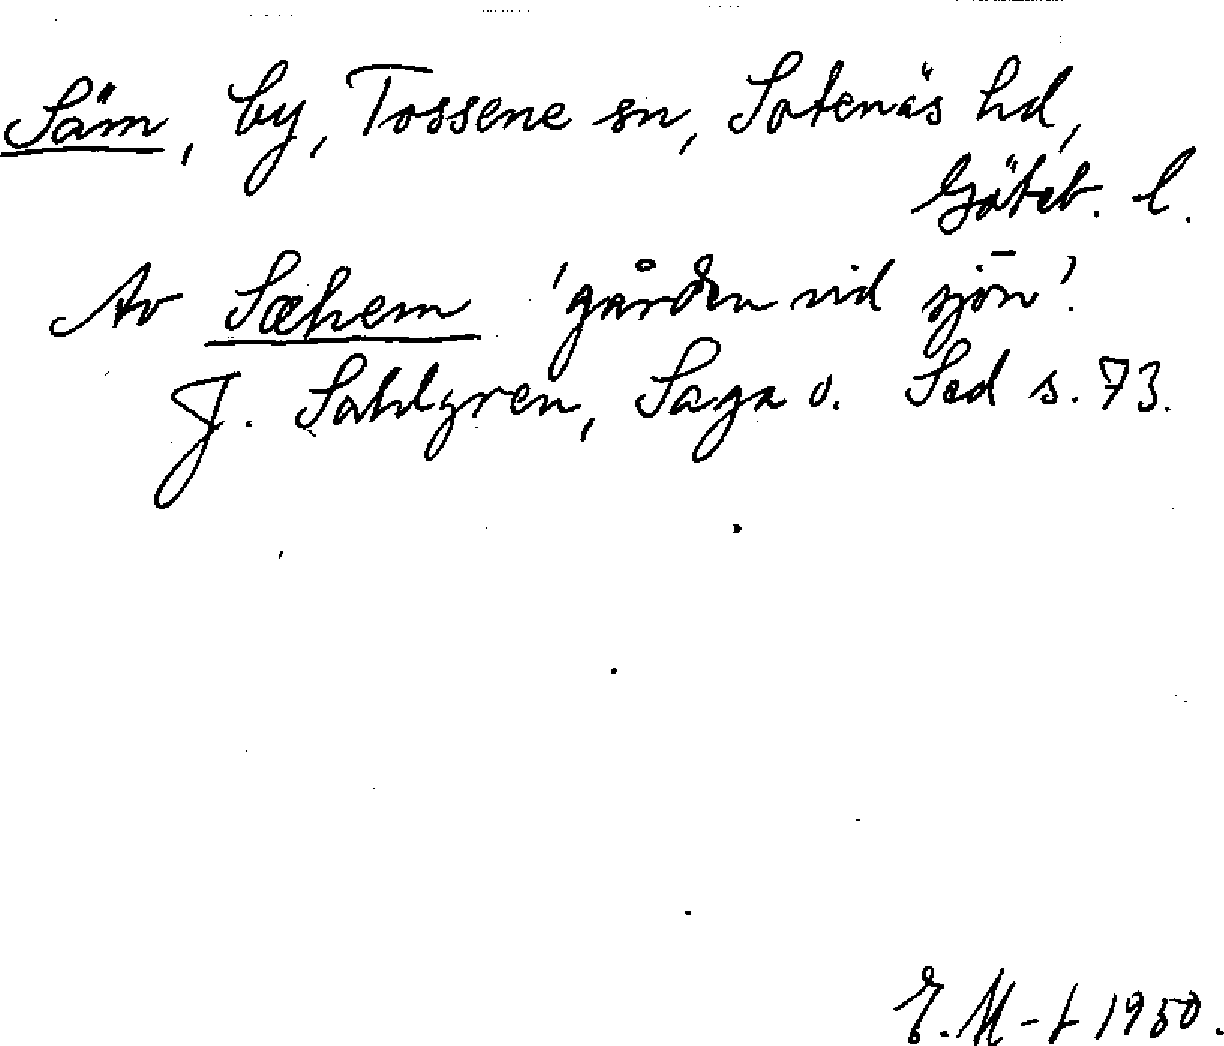 Säm, by, Tossene sn, Sotenäs hd,
Göteb. l.
Av Sæhem 'gården vid sjön'.
J. Sahlgren, Saga o. Sed s. 73.
E. M-t 1950.